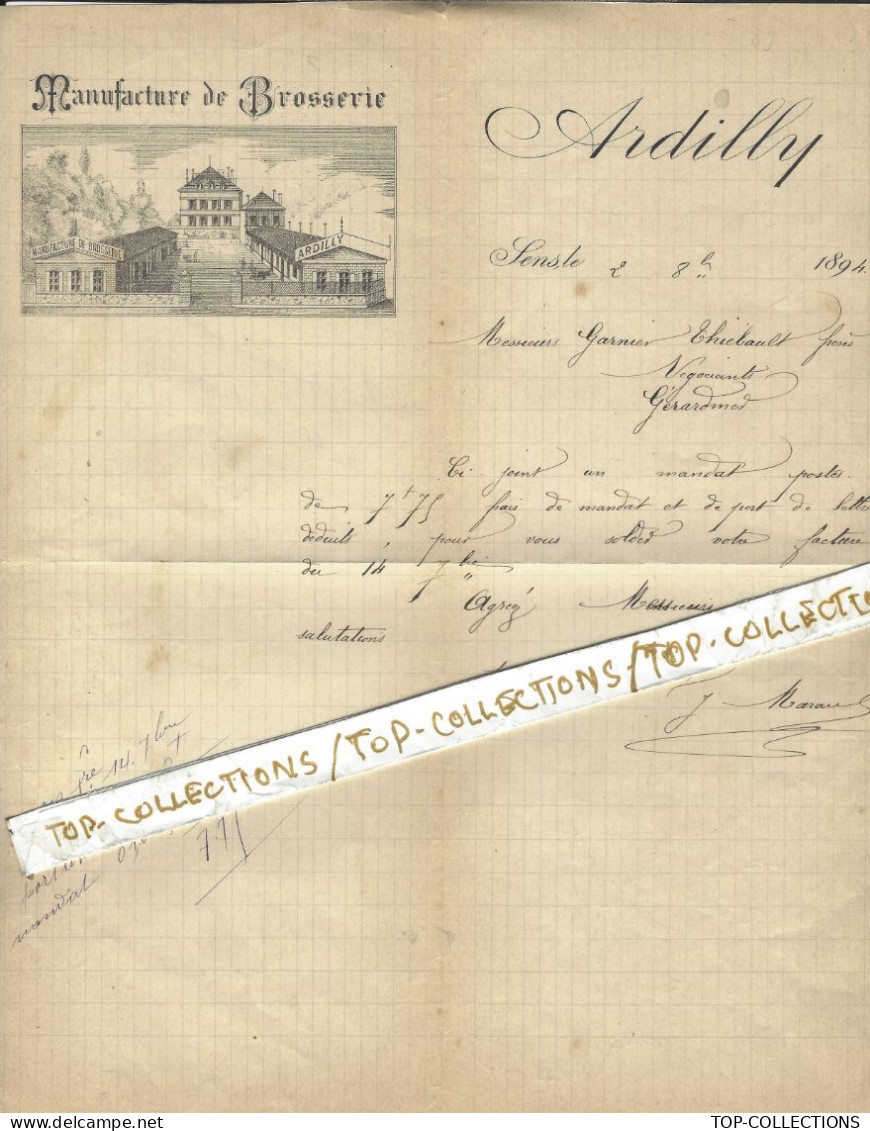 Manufacture de Brosserie
MANUFACTURE DE BROSSERIE
ARDILLY
Ardilly
Sens, le 2 8b 1894.
Messieurs Garnier Thiébault frères
Négociants
Gérardmer
Ci joint un mandat postes
de 7f 75 frais de mandat et de port de lettre
déduits, pour vous solder votre facture
du 14 7bre
Agréez Messieurs
salutations
J Marau
14. 7bre
7.75
mandat
TOP-COLLECTIONS / TOP-COLLECTIONS / TOP-COLLECTIO
TOP-COLLECTIONS